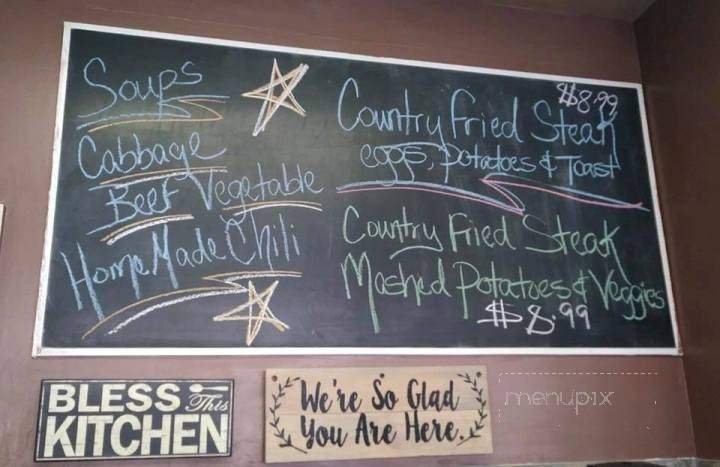 Soups
Cabbage
Beef Vegetable
HomeMade Chili
$8.99
Country Fried Steak
eggs, Potatoes & Toast
Country Fried Steak
Mashed Potatoes & Veggies
$8.99
BLESS This
KITCHEN
We're So Glad
You Are Here.
menupix